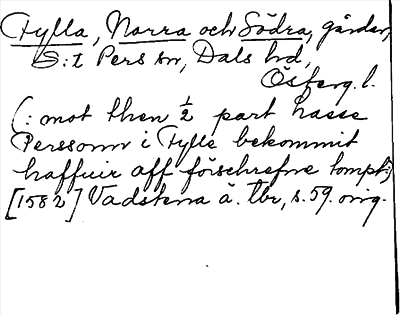 Fylla, Norra och Södra, gårdar,
S:t Pers sn, Dals hd,
Östergl.
(: mot then ½ part hasse
Perssonn i Fylle bekommit
haffuir aff förschrefne tompt:)
[1582] Vadstena ä. tbr, s. 59. orig.